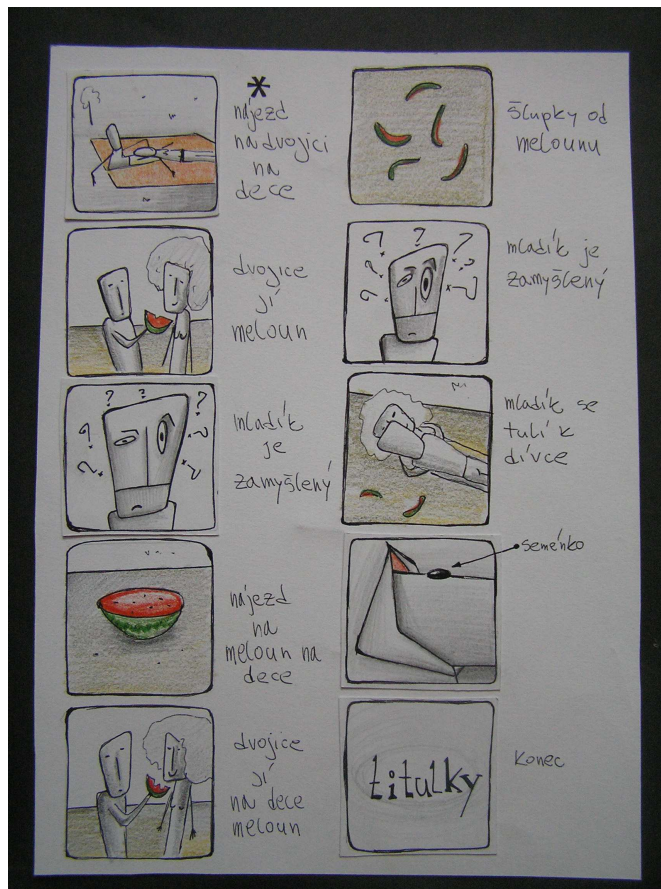 *
nájezd
na dvojici
na
dece
dvojice
jí
meloun
mladík
je
zamyšlený
nájezd
na
meloun na
dece
dvojice
jí
na dece
meloun
šlupky od
melounu
mladík je
zamyšlený
mladík se
tulí k
dívce
seménko
titulky
konec